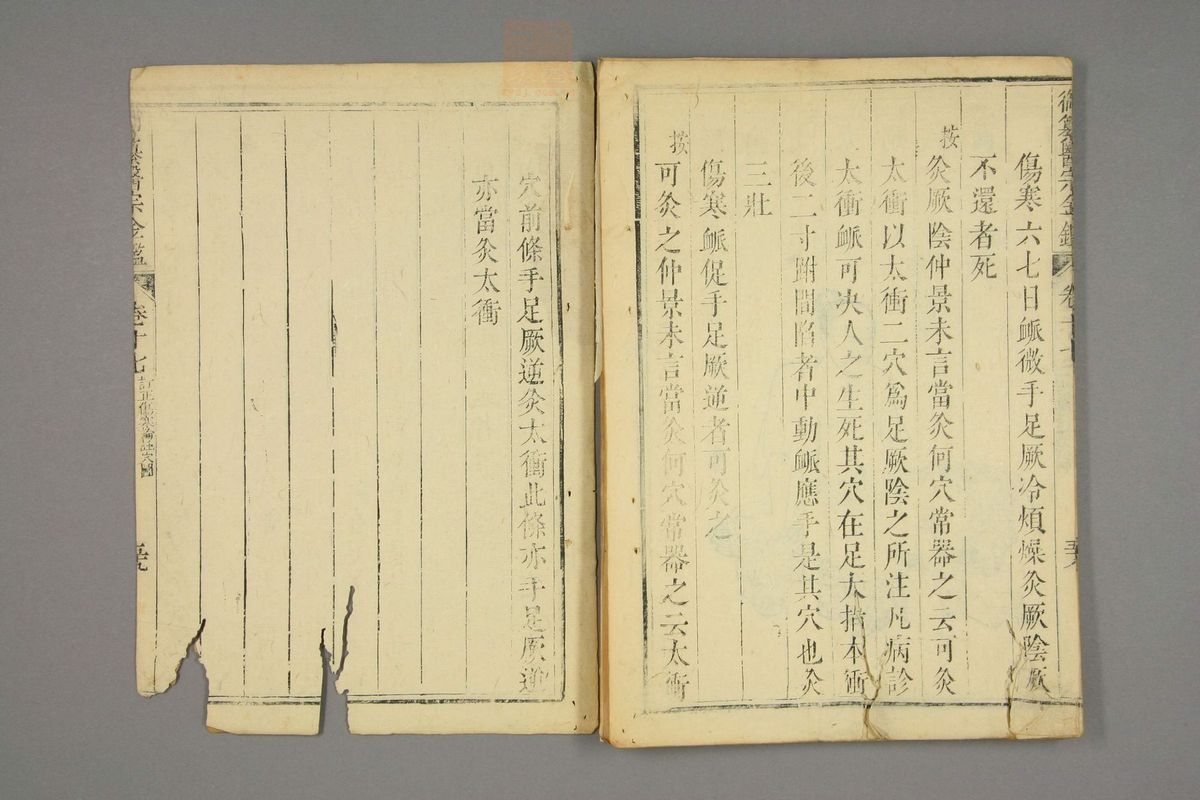 御纂醫宗金鑑 卷十七 五六
傷寒六七日䘑微手足厥冷煩燥灸厥陰厥
不還者死
按灸厥陰仲景未言當灸何穴常器之云可灸
太衝以太衝二穴爲足厥陰之所注凡病診
太衝䘑可决人之生死其穴在足大指本節
後二寸跗間陷者中動䘑應手是其穴也灸
三壯
傷寒䘑促手足厥逆者可灸之
按可灸之仲景未言當灸何穴常器之云太衝
穴前條手足厥逆灸太衝此條亦手足厥逆
亦當灸太衝
纂醫宗金鑑 卷十七 訂正傷寒論註 五七